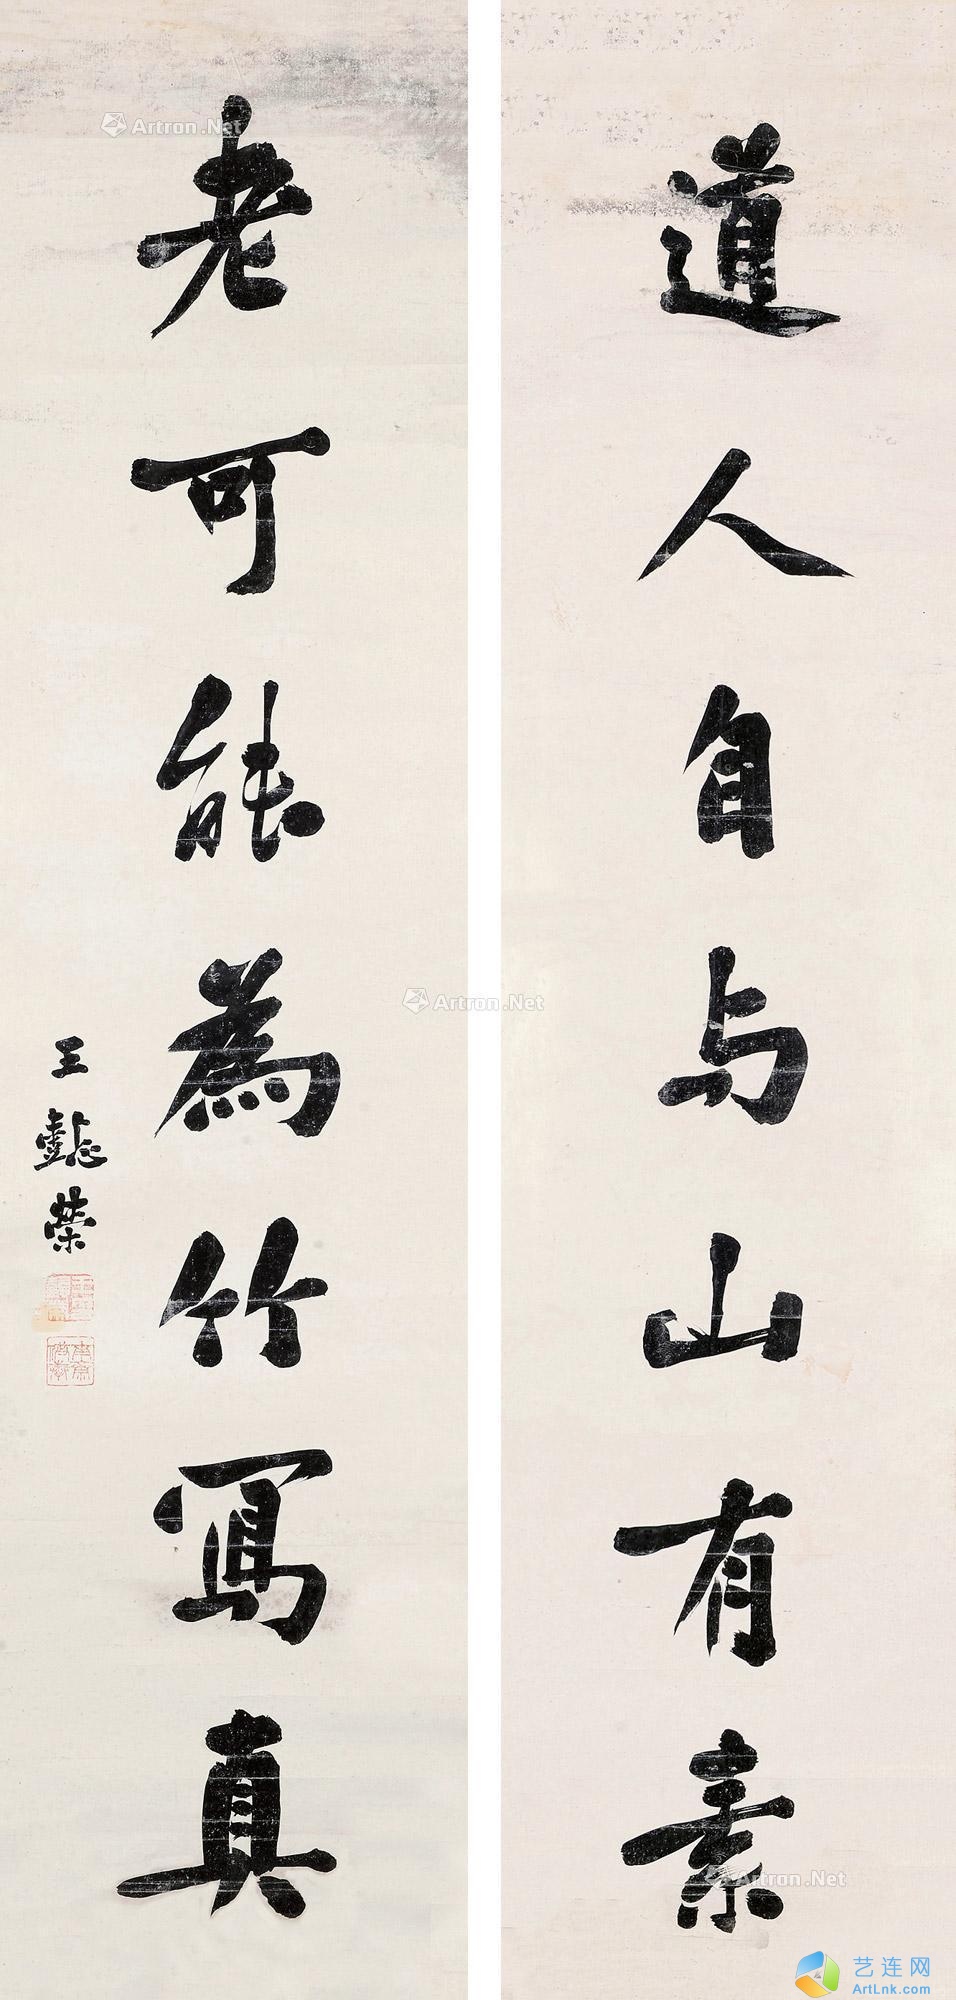 道人自与山有素
老可能為竹寫真
王懿榮
Artron.Net
Artron.Net
Artron.Net
艺连网
ArtLnk.com